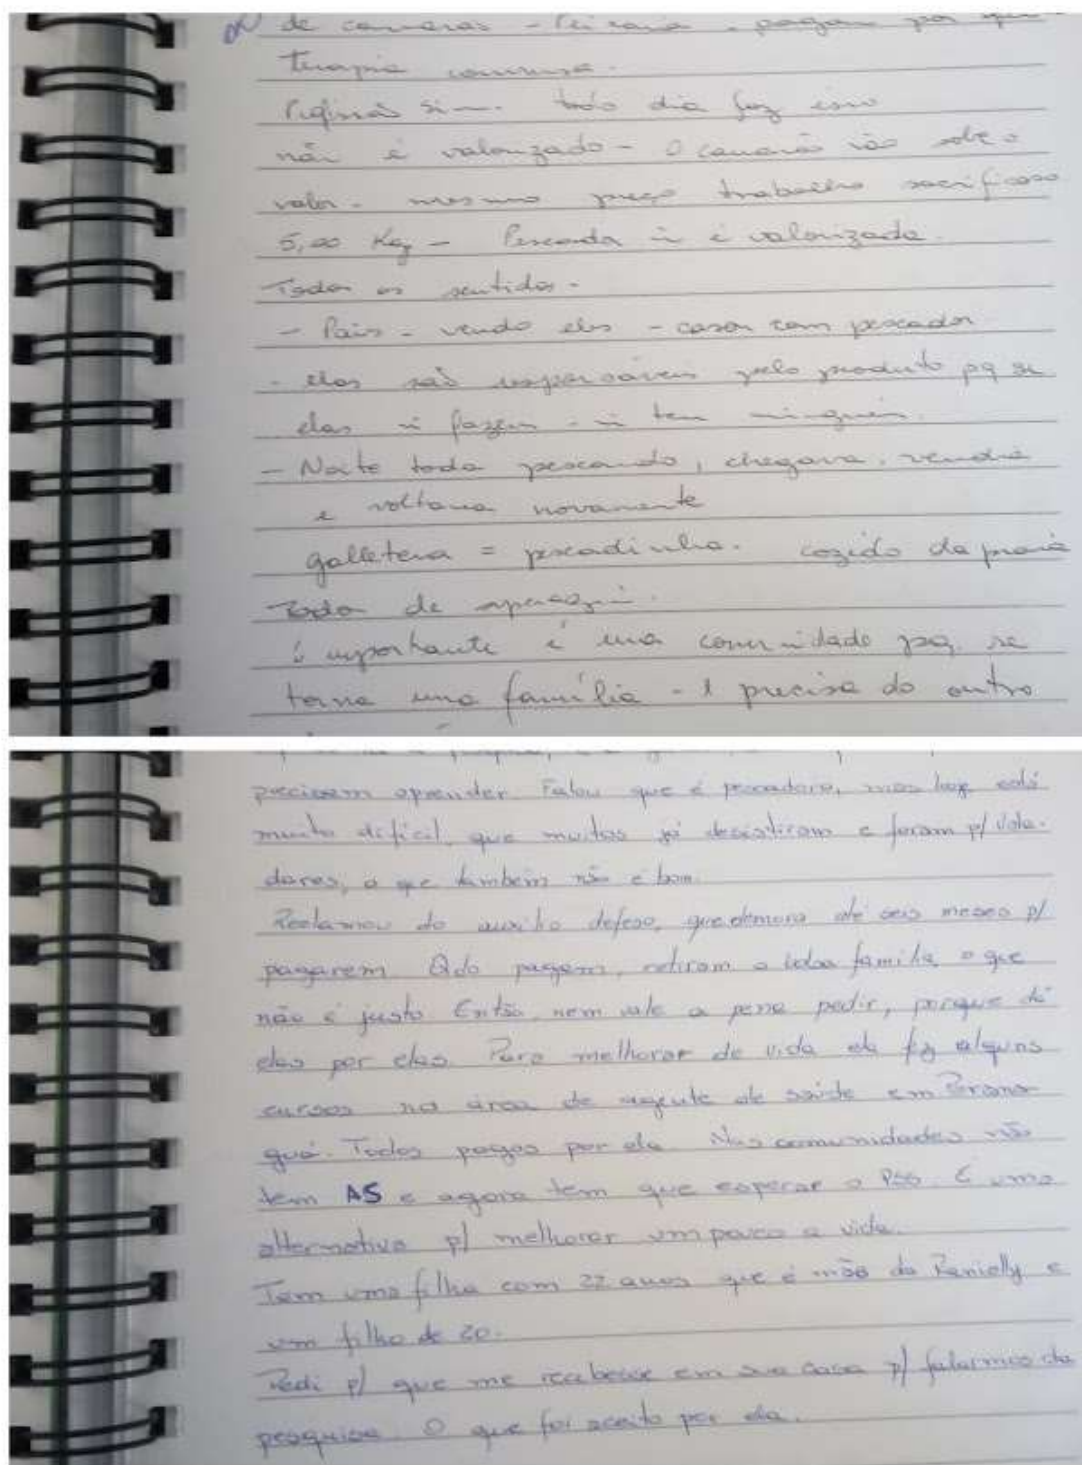 de camarão - pagam por
terapia conversa.
Profissão sim - todo dia faz isso
não é valorizado - O camarão não sobe o
valor - mesmo preço trabalho sacrificoso
5,00 Kg - Pescada ñ é valorizada.
Todos os sentidos.
- Pais - vendo eles - casar com pescador
- elas são responsáveis pelo produto pq se
elas ñ fazem - ñ tem ninguém.
- Noite toda pescando, chegava, vendia
e voltava novamente
galleteva = pescadinha. cozido da praia
Toda de
é importante é uma comunidade pq se
torna uma família - 1 precisa do outro
precisam aprender. Falou que é pescadora, mas hoje está
muito difícil, que muitos já desistiram e foram p/ Vale-
dares, o que também não é bom.
Reclamou do auxílio defeso, que demora até seis meses p/
pagarem. Qdo pagam, retiram o bolsa família, o que
não é justo. Então, nem vale a pena pedir, porque dá
elas por elas. Para melhorar de vida ela fez alguns
cursos na área de agente de saúde em Parana-
guá. Todos pagos por ela. Nas comunidades não
tem AS e agora tem que esperar o PSS. É uma
alternativa p/ melhorar um pouco a vida.
Tem uma filha com 22 anos que é mãe da Ranielly e
um filho de 20.
Pedi p/ que me recebesse em sua casa p/ falarmos da
pesquisa. O que foi aceito por ela.